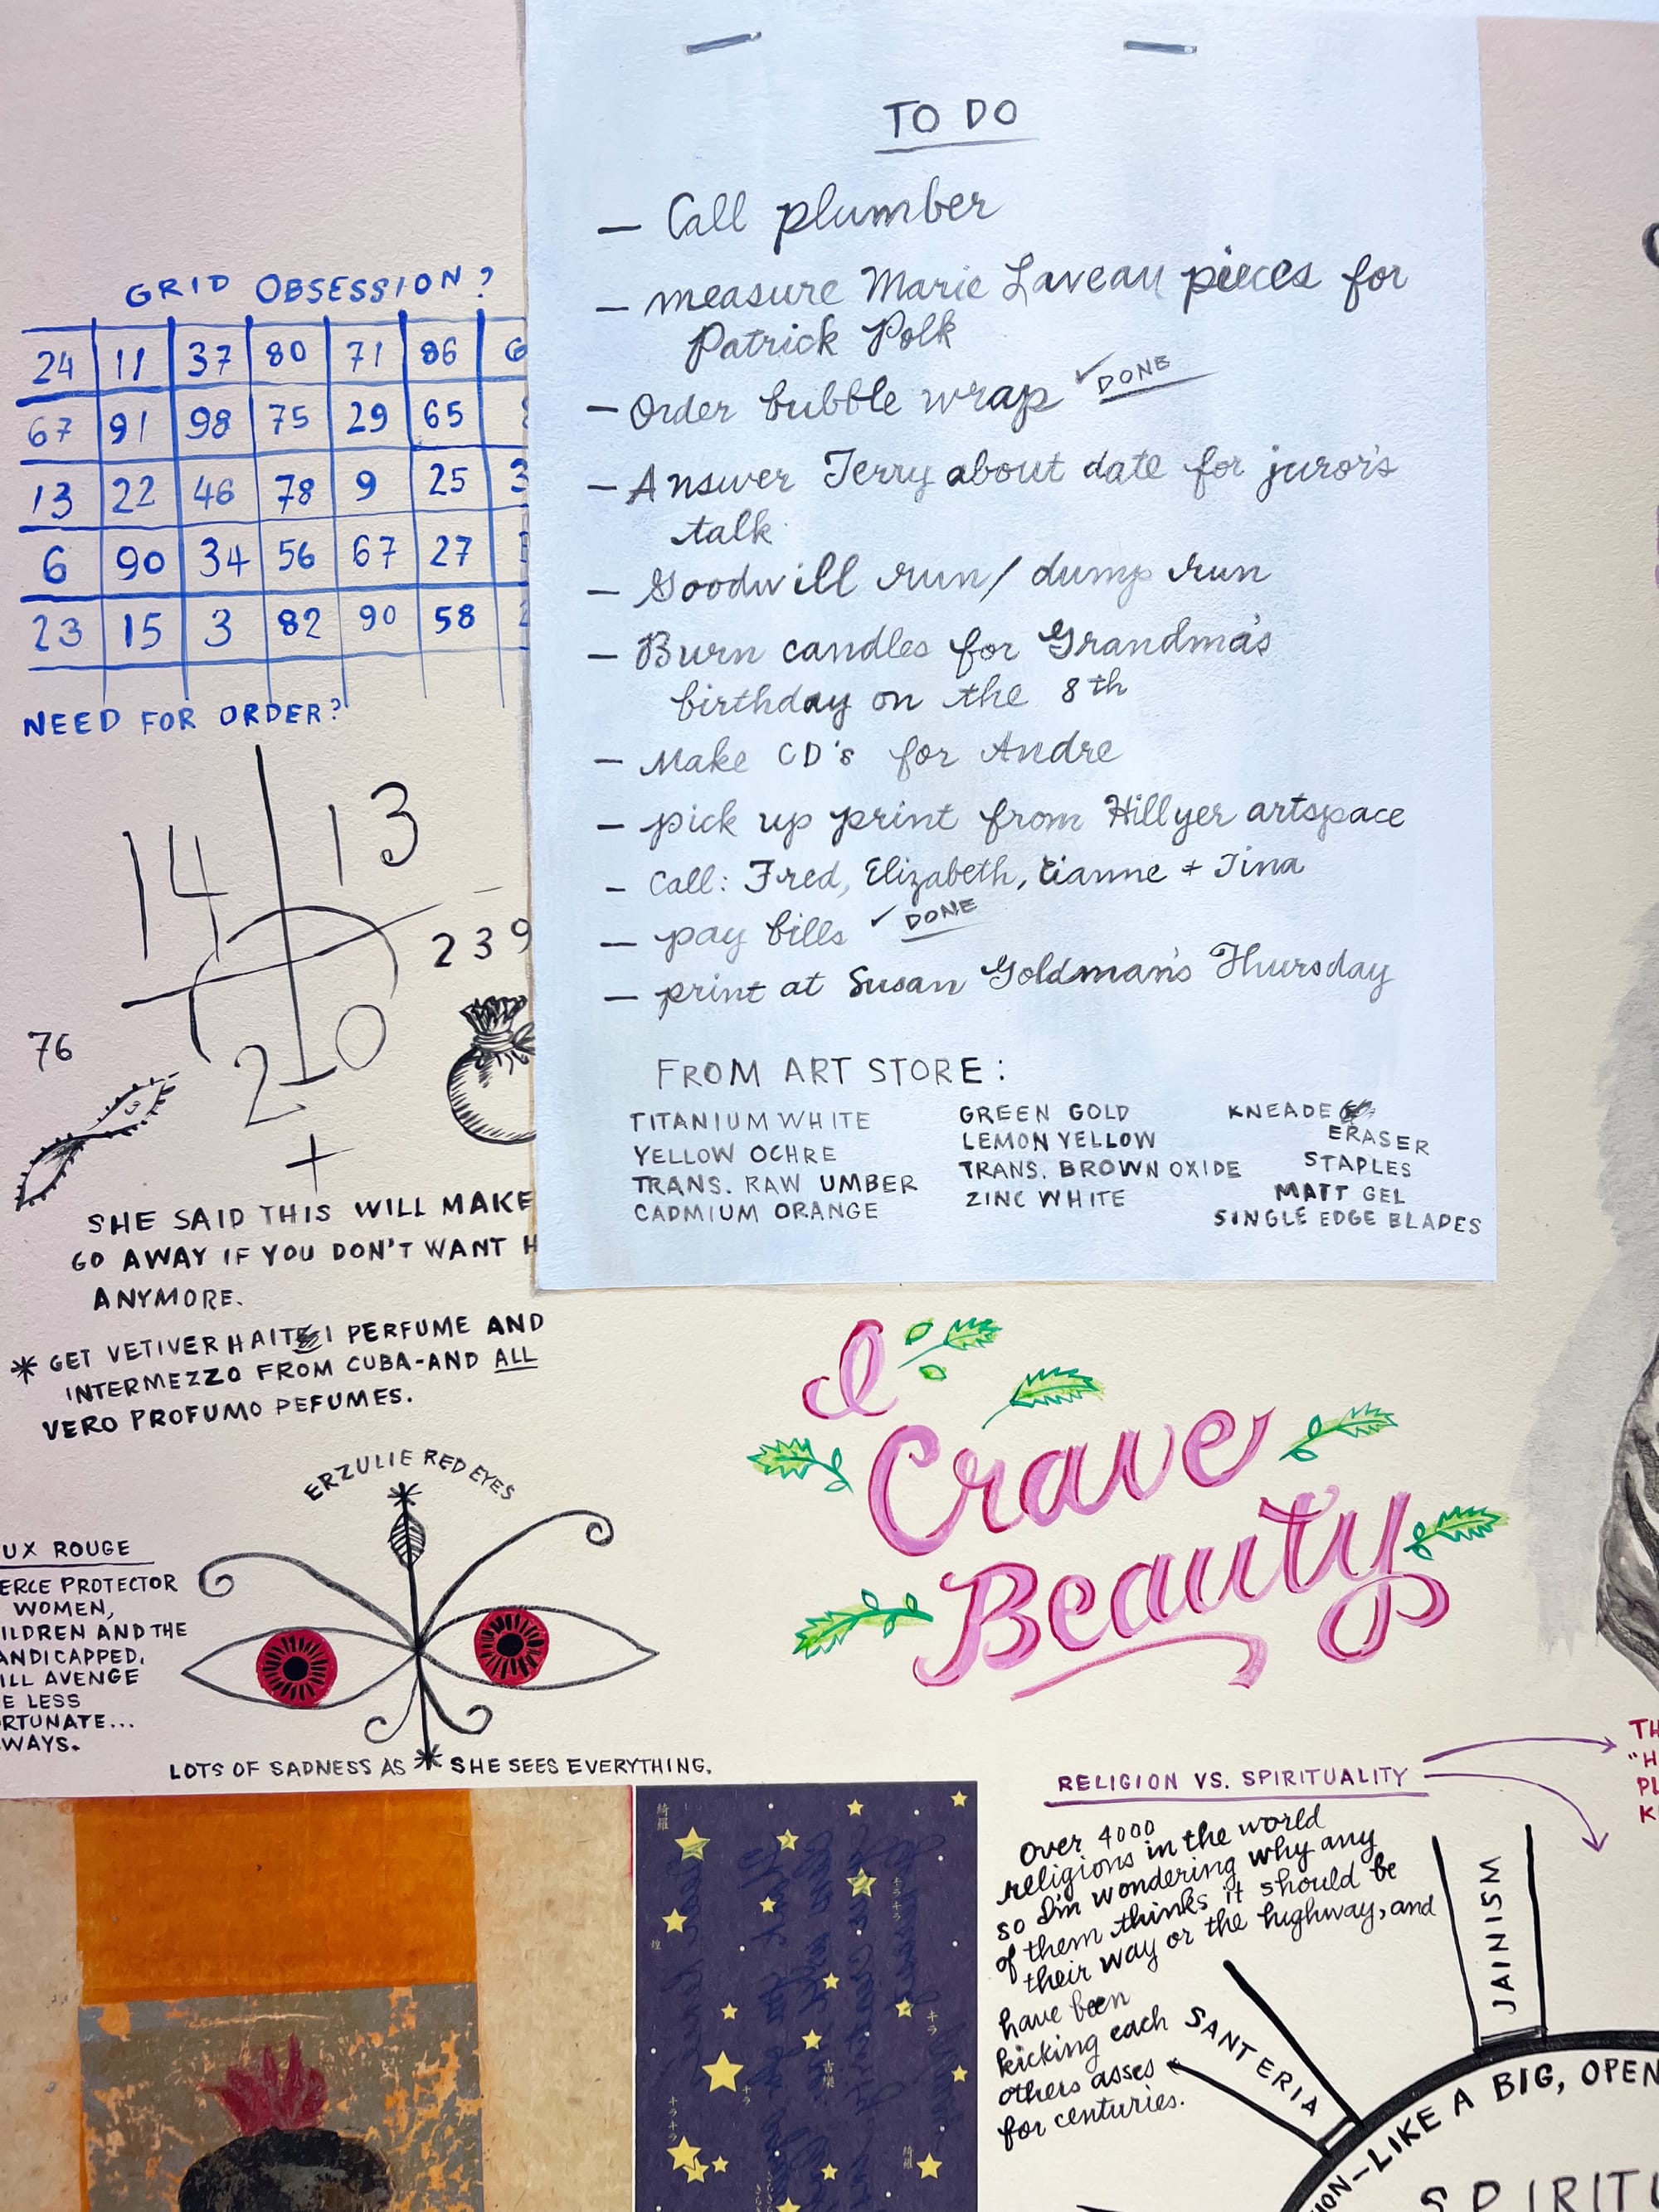 TO DO
— Call plumber
— measure Marie Laveau pieces for
Patrick Polk
— Order bubble wrap ✓ DONE
— Answer Terry about date for juror's
talk
— Goodwill run/ dump run
— Burn candles for Grandma's
birthday on the 8th
— Make CD's for Andre
— pick up print from Hillyer artspace
— Call: Fred, Elizabeth, Lianne + Tina
— pay bills ✓ DONE
— print at Susan Goldman's Thursday
FROM ART STORE:
TITANIUM WHITE
YELLOW OCHRE
TRANS. RAW UMBER
CADMIUM ORANGE
GREEN GOLD
LEMON YELLOW
TRANS. BROWN OXIDE
ZINC WHITE
KNEADE
ERASER
STAPLES
MATT GEL
SINGLE EDGE BLADES
GRID OBSESSION?
24 11 37 80 71 86 6
67 91 98 75 29 65
13 22 46 78 9 25 3
6 90 34 56 67 27
23 15 3 82 90 58
NEED FOR ORDER?
14 13
239
76
20
SHE SAID THIS WILL MAKE
GO AWAY IF YOU DON'T WANT H
ANYMORE.
* GET VETIVER HAITI PERFUME AND
INTERMEZZO FROM CUBA-AND ALL
VERO PROFUMO PEFUMES.
ERZULIE RED EYES
UX ROUGE
ERCE PROTECTOR
WOMEN,
ILDREN AND THE
ANDICAPPED.
ILL AVENGE
E LESS
RTUNATE...
WAYS.
LOTS OF SADNESS AS * SHE SEES EVERYTHING.
I
Crave
Beauty
RELIGION VS. SPIRITUALITY
TH
"H
PL
K
Over 4000
religions in the world
so I'm wondering why any
of them thinks it should be
their way or the highway, and
have been
kicking each
others asses
for centuries.
SANTERIA
JAINISM
ION—LIKE A BIG, OPEN
SPIRITU
綺羅
キラキラ
煌
キラ
吉樂
キラ
キラキラ
綺羅